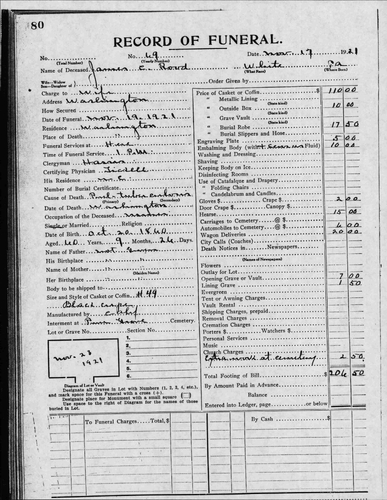 80
RECORD OF FUNERAL.
No. No. 69 Date, Nov. 17 1921
(Total Number) (Yearly Number)
Name of Deceased, James E. White Pa
(What Race) (Where Born)
Wife-Widow
Son-Daughter of
Order Given by
Charge to Wife
Address Washington
Order given
Date of Funeral, Nov. 19, 1921
Residence, Washington
Place of Death,
Funeral Services at
Time of Funeral Service, 1 P.M.
Clergyman Harris
Certifying Physician
His Residence
Number of Burial Certificate
Cause of Death,
(Primary) (Secondary)
Date of Death, Washington
Occupation of the Deceased
Single or Married Religion
Date of Birth, Oct 20, 1860
Aged, 60 Years, 9 Months, 26 Days
Name of Father,
His Birthplace
Name of Mother
(Maiden Name)
Her Birthplace
Body to be shipped to
Size and Style of Casket or Coffin, #49
Black crape
Manufactured by
Interment at Grove Cemetery.
Lot or Grave No. Section No.
1.
2.
3.
4.
5.
6.
Nov. 23
1921
Diagram of Lot or Vault
Designate all Graves in Lot with Numbers (1, 2, 3, 4, etc.),
and mark space for this Funeral with a cross (+).
Designate place for Monument with a small square
Use space to the right of Diagram for the names of those
buried in Lot.
Price of Casket or Coffin 110 00
" Metallic Lining
" Outside Box 10 00
(State kind)
" Grave Vault
(State kind)
" Burial Robe 17 50
(State kind)
" Burial Slippers and Hose
Engraving Plate 5 00
Embalming Body (with Fluid) 10 00
Washing and Dressing
Shaving
Keeping Body on Ice
Disinfecting Rooms
Use of Catafalque and Drapery
" Folding Chairs
" Candelabrum and Candles
Gloves $ Crape $ 2 00
Door Crape $ Canopy $
Hearse 15 00
Carriages to Cemetery @ $
Automobiles to Cemetery @ $ 6 00
Wagon Deliveries 20 00
City Calls (Coaches)
Death Notices in Newspapers.
(Names of Newspapers)
Flowers
Outlay for Lot
Opening Grave or Vault 7 00
Lining Grave 1 50
Evergreen
Tent or Awning Charges
Vault Rental
Shipping Charges, prepaid
Removal Charges
Cremation Charges
Porters $ Watchers $
Personal Services
Music
Church Charges
Extra work at cemetery 2 50
Total Footing of Bill, $ 206 50
By Amount Paid in Advance
Balance
Entered into Ledger, page or below.
To Funeral Charges. Total, $ By Cash $